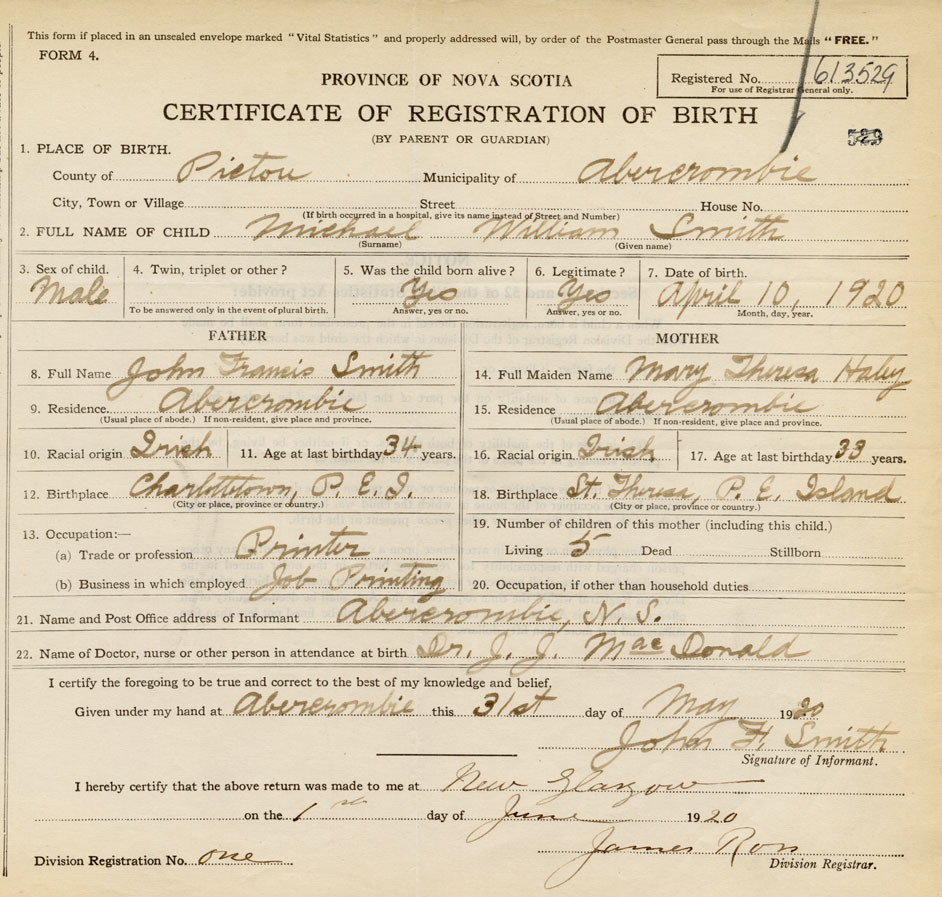 This form if placed in an unsealed envelope marked "Vital Statistics" and properly addressed will, by order of the Postmaster General pass through the Mails "FREE."
FORM 4.
PROVINCE OF NOVA SCOTIA
Registered No. 613529
For use of Registrar General only.
CERTIFICATE OF REGISTRATION OF BIRTH
(BY PARENT OR GUARDIAN)
529
1. PLACE OF BIRTH.
County of Pictou Municipality of Abercrombie
City, Town or Village Street House No.
(If birth occurred in a hospital, give its name instead of Street and Number)
2. FULL NAME OF CHILD Michael William Smith
(Surname) (Given name)
3. Sex of child. 4. Twin, triplet or other? 5. Was the child born alive? 6. Legitimate? 7. Date of birth.
Male Yes Yes April 10, 1920
To be answered only in the event of plural birth. Answer, yes or no. Answer, yes or no. Month, day, year.
FATHER MOTHER
8. Full Name John Francis Smith 14. Full Maiden Name Mary Theresa Haley
9. Residence Abercrombie 15. Residence Abercrombie
(Usual place of abode.) If non-resident, give place and province. (Usual place of abode.) If non-resident, give place and province.
10. Racial origin Irish 11. Age at last birthday 34 years. 16. Racial origin Irish 17. Age at last birthday 33 years.
12. Birthplace Charlottetown, P. E. I. 18. Birthplace St. Theresa, P. E. Island
(City or place, province or country.) (City or place, province or country.)
13. Occupation:— 19. Number of children of this mother (including this child.)
(a) Trade or profession Printer Living 5 Dead Stillborn
(b) Business in which employed Job Printing 20. Occupation, if other than household duties
21. Name and Post Office address of Informant Abercrombie, N. S.
22. Name of Doctor, nurse or other person in attendance at birth Dr. J. J. MacDonald
I certify the foregoing to be true and correct to the best of my knowledge and belief.
Given under my hand at Abercrombie this 31st day of May 1920
John F. Smith
Signature of Informant.
I hereby certify that the above return was made to me at New Glasgow
on the 1st day of June 1920
James Ross
Division Registration No. one Division Registrar.